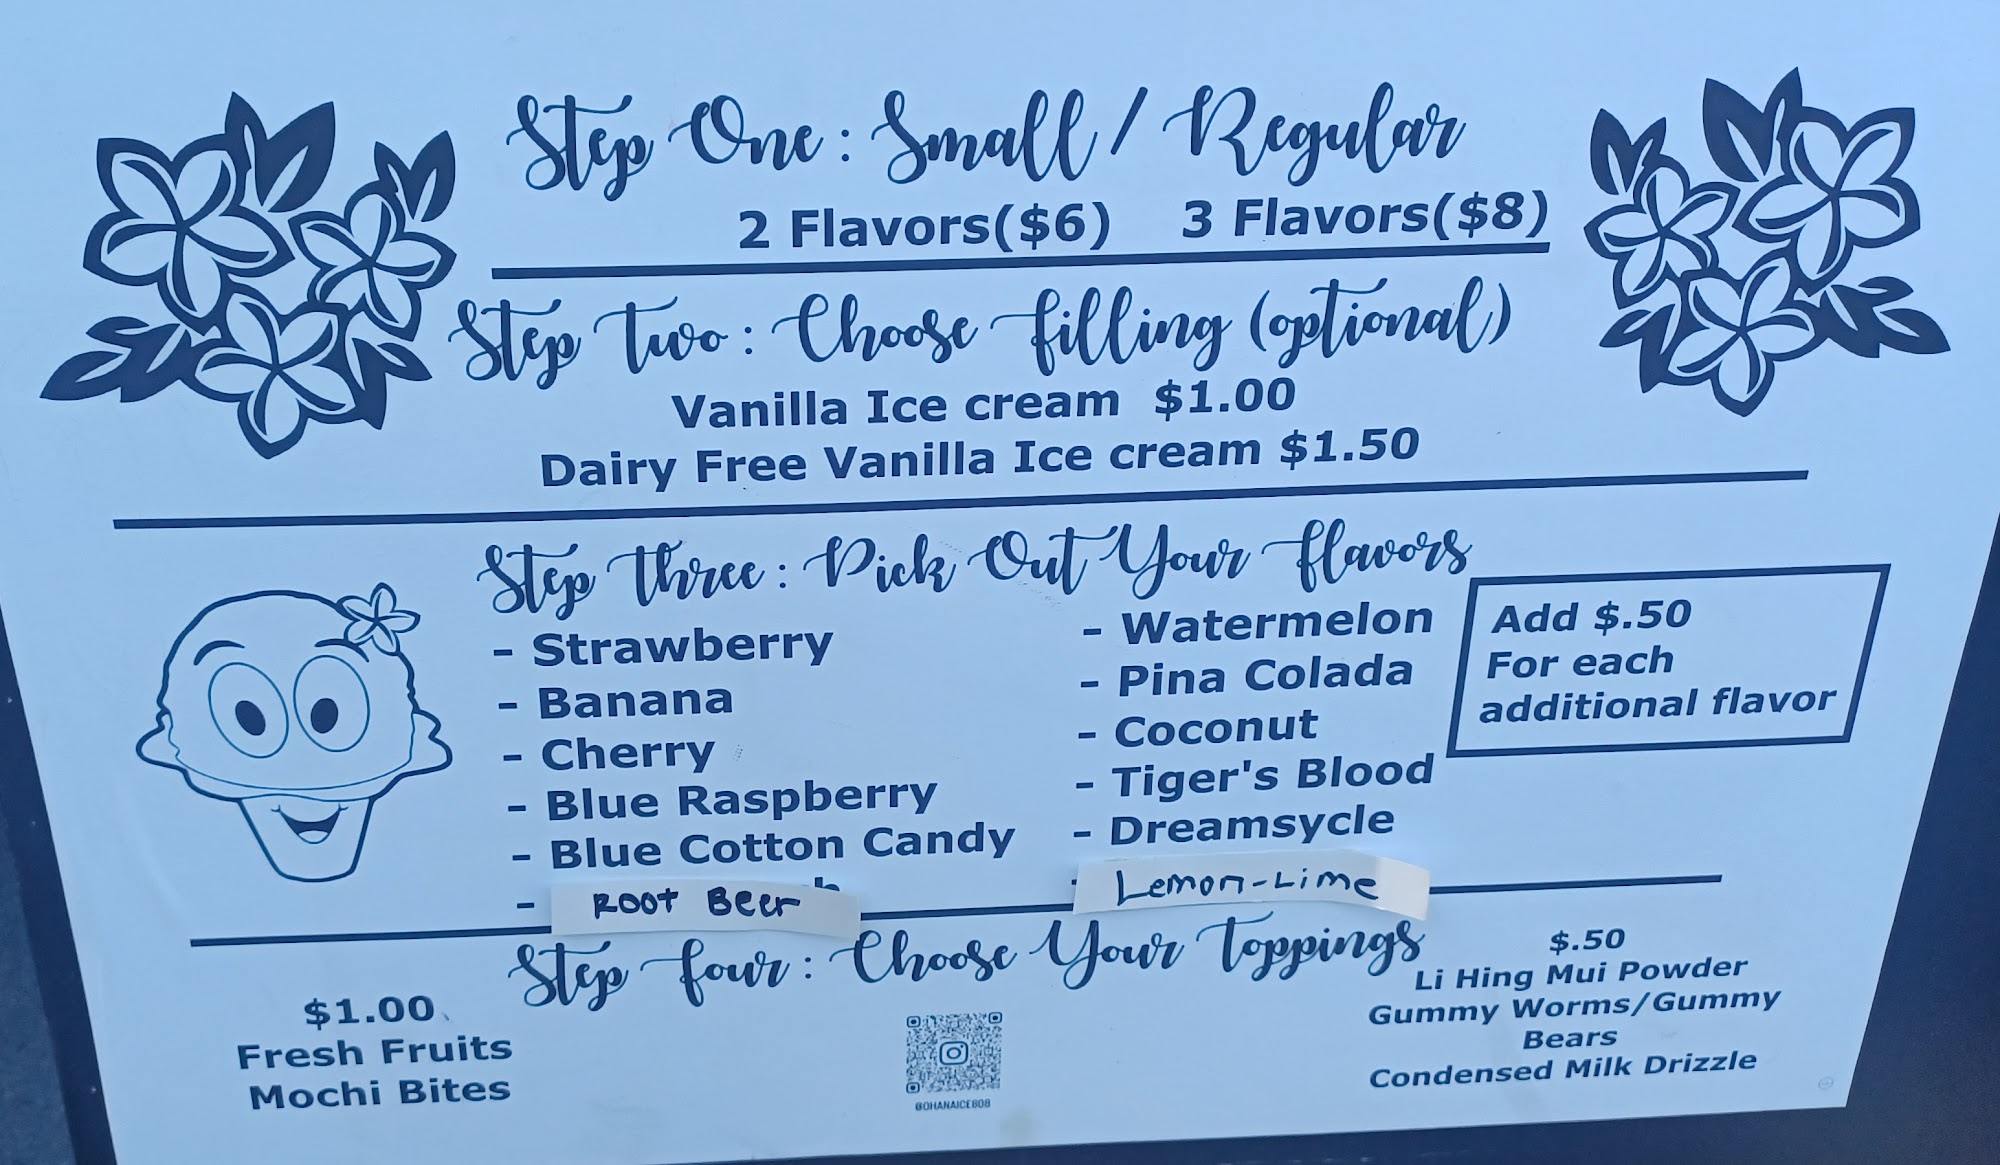 Step One: Small / Regular
2 Flavors($6) 3 Flavors($8)
Step Two: Choose Filling (optional)
Vanilla Ice cream $1.00
Dairy Free Vanilla Ice cream $1.50
Step Three: Pick Out Your Flavors
- Strawberry
- Banana
- Cherry
- Blue Raspberry
- Blue Cotton Candy
- Root Beer
- Watermelon
- Pina Colada
- Coconut
- Tiger's Blood
- Dreamsycle
- Lemon-Lime
Add $.50
For each
additional flavor
Step Four: Choose Your Toppings
$1.00
Fresh Fruits
Mochi Bites
@OHANAICE808
$.50
Li Hing Mui Powder
Gummy Worms/Gummy
Bears
Condensed Milk Drizzle